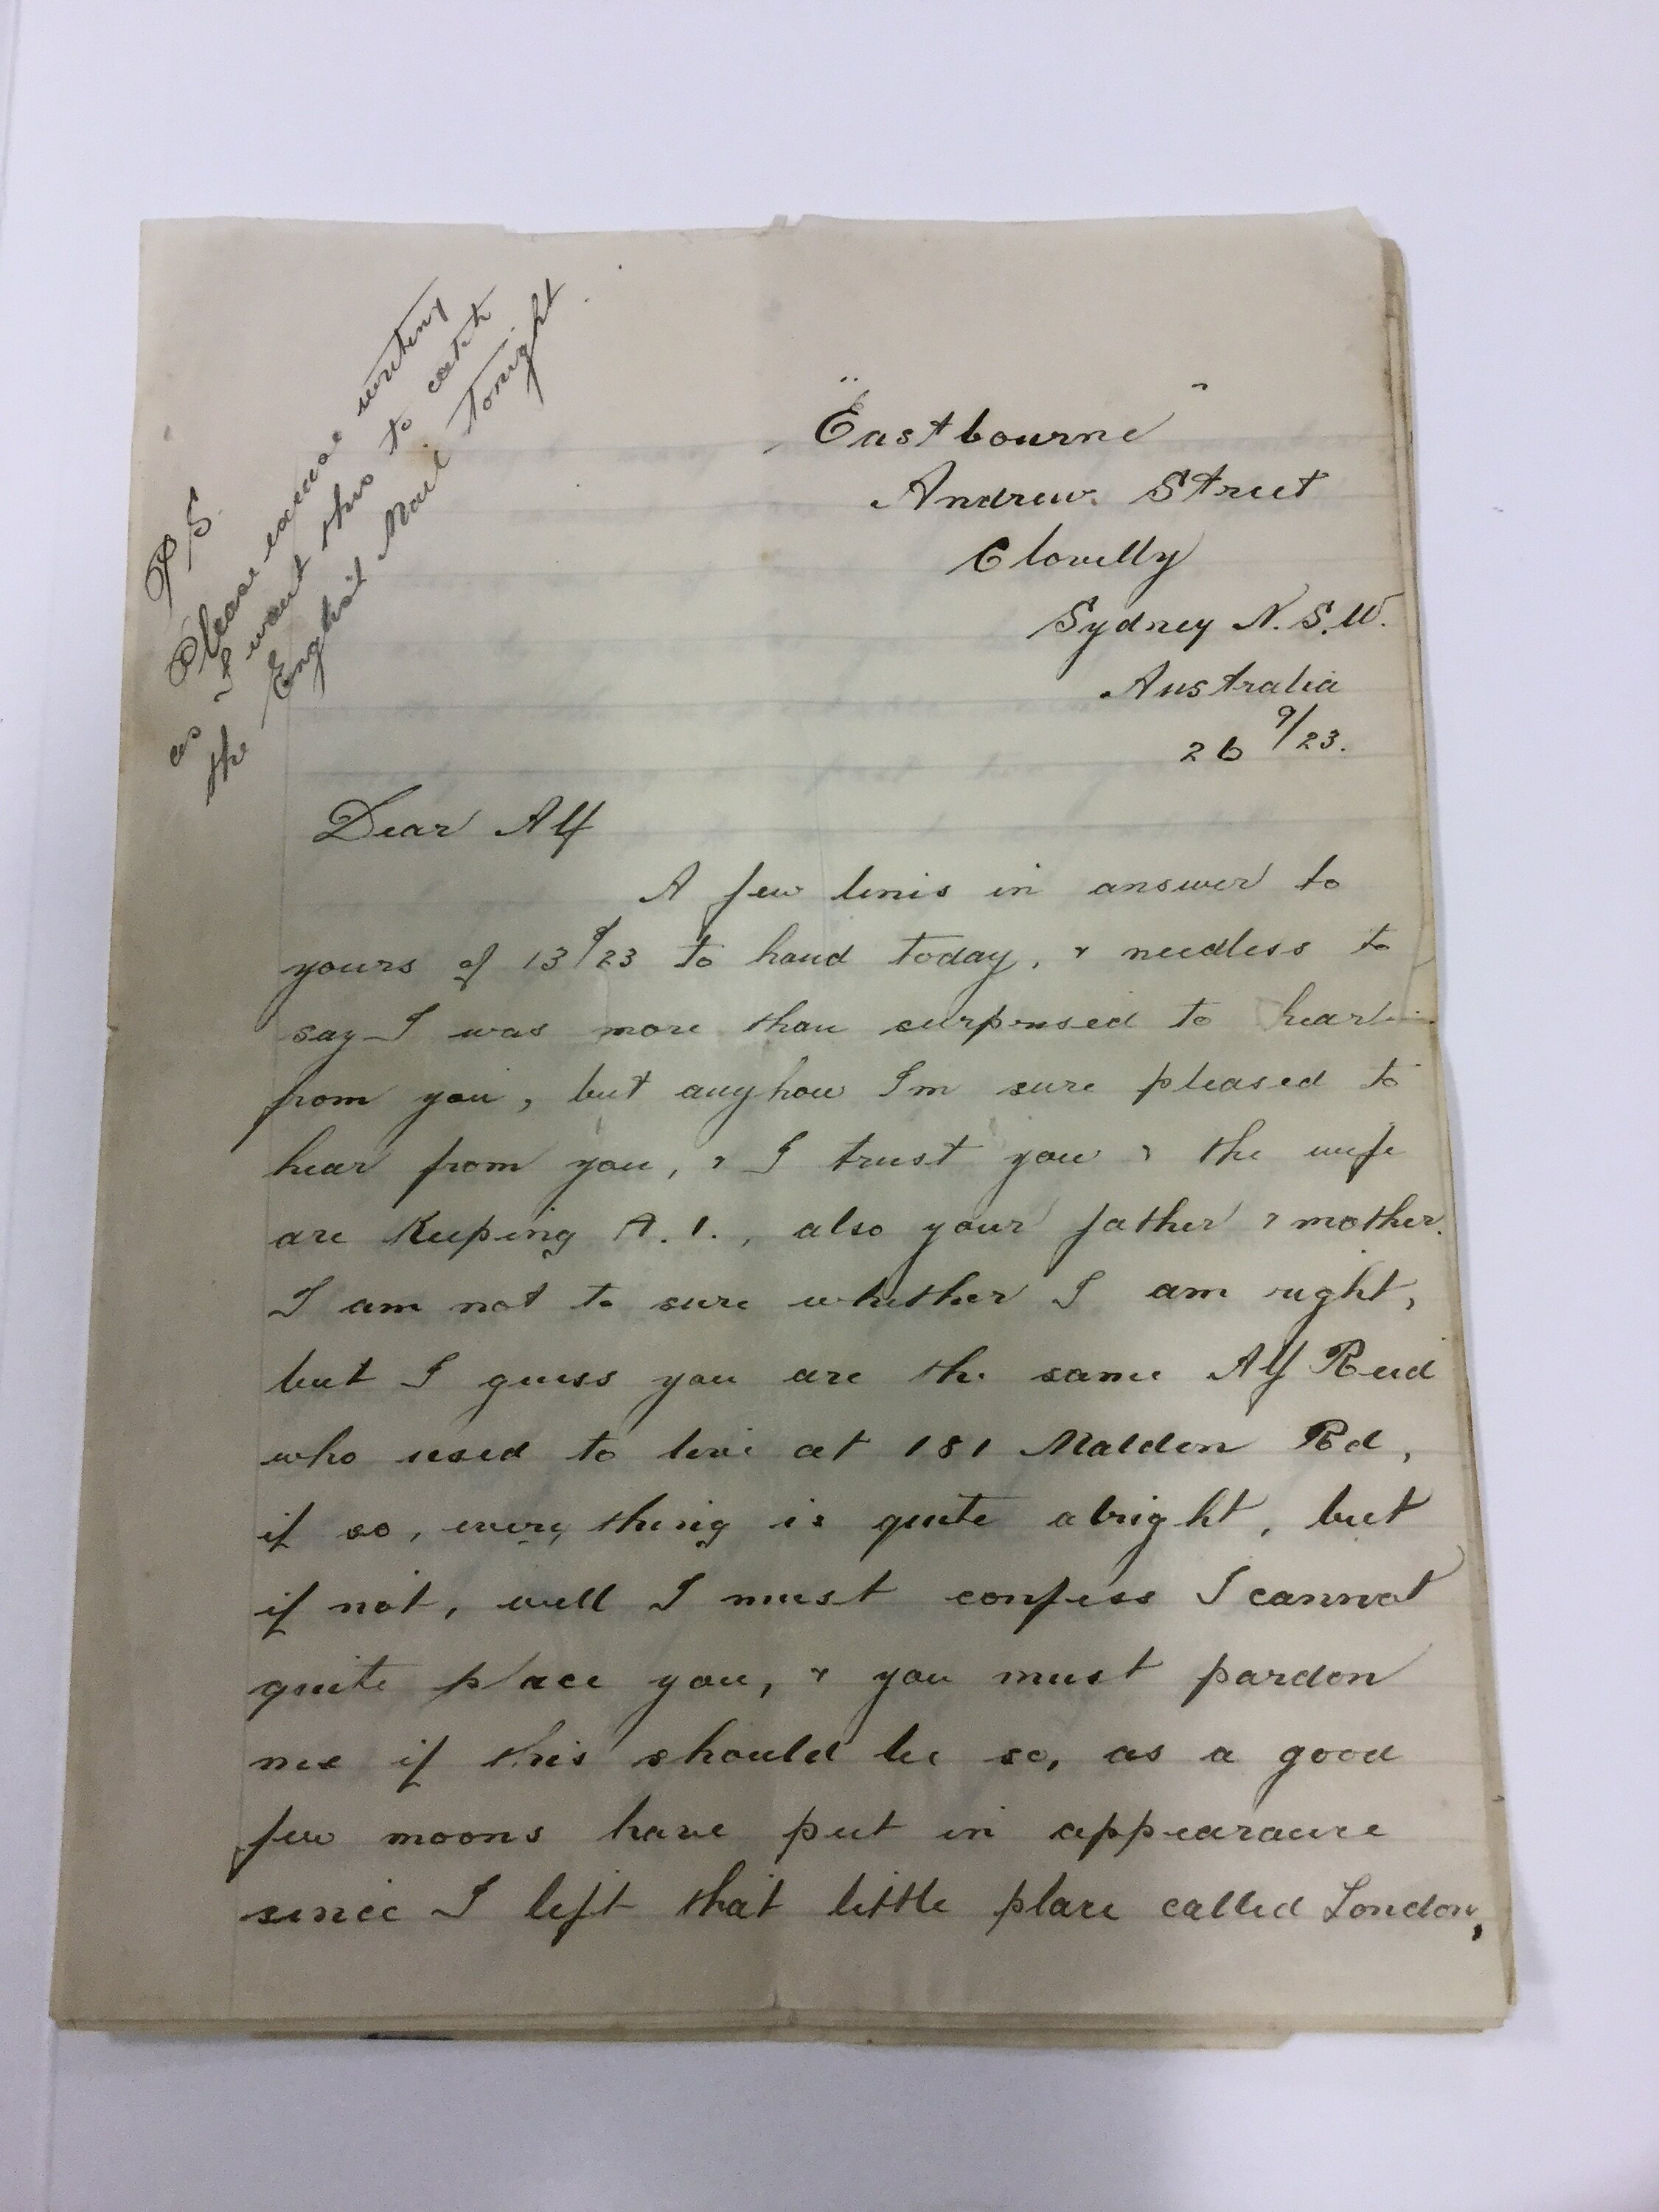 P.S.
Please excuse writing
as I want this to catch
the English Mail tonight
"Eastbourne"
Andrew Street
Clovelly
Sydney N.S.W.
Australia
26 9/23.
Dear Alf
A few lines in answer to
yours of 13 8/23 to hand today, & needless to
say I was more than surprised to hear
from you, but anyhow I'm sure pleased to
hear from you, & I trust you & the wife
are keeping A.1., also your father & mother.
I am not to sure whether I am right,
but I guess you are the same Alf Reid
who used to live at 181 Malden Rd,
if so, every thing is quite alright, but
if not, well I must confess I cannot
quite place you, & you must pardon
me if this should be so, as a good
few moons have put in appearance
since I left that little place called London,